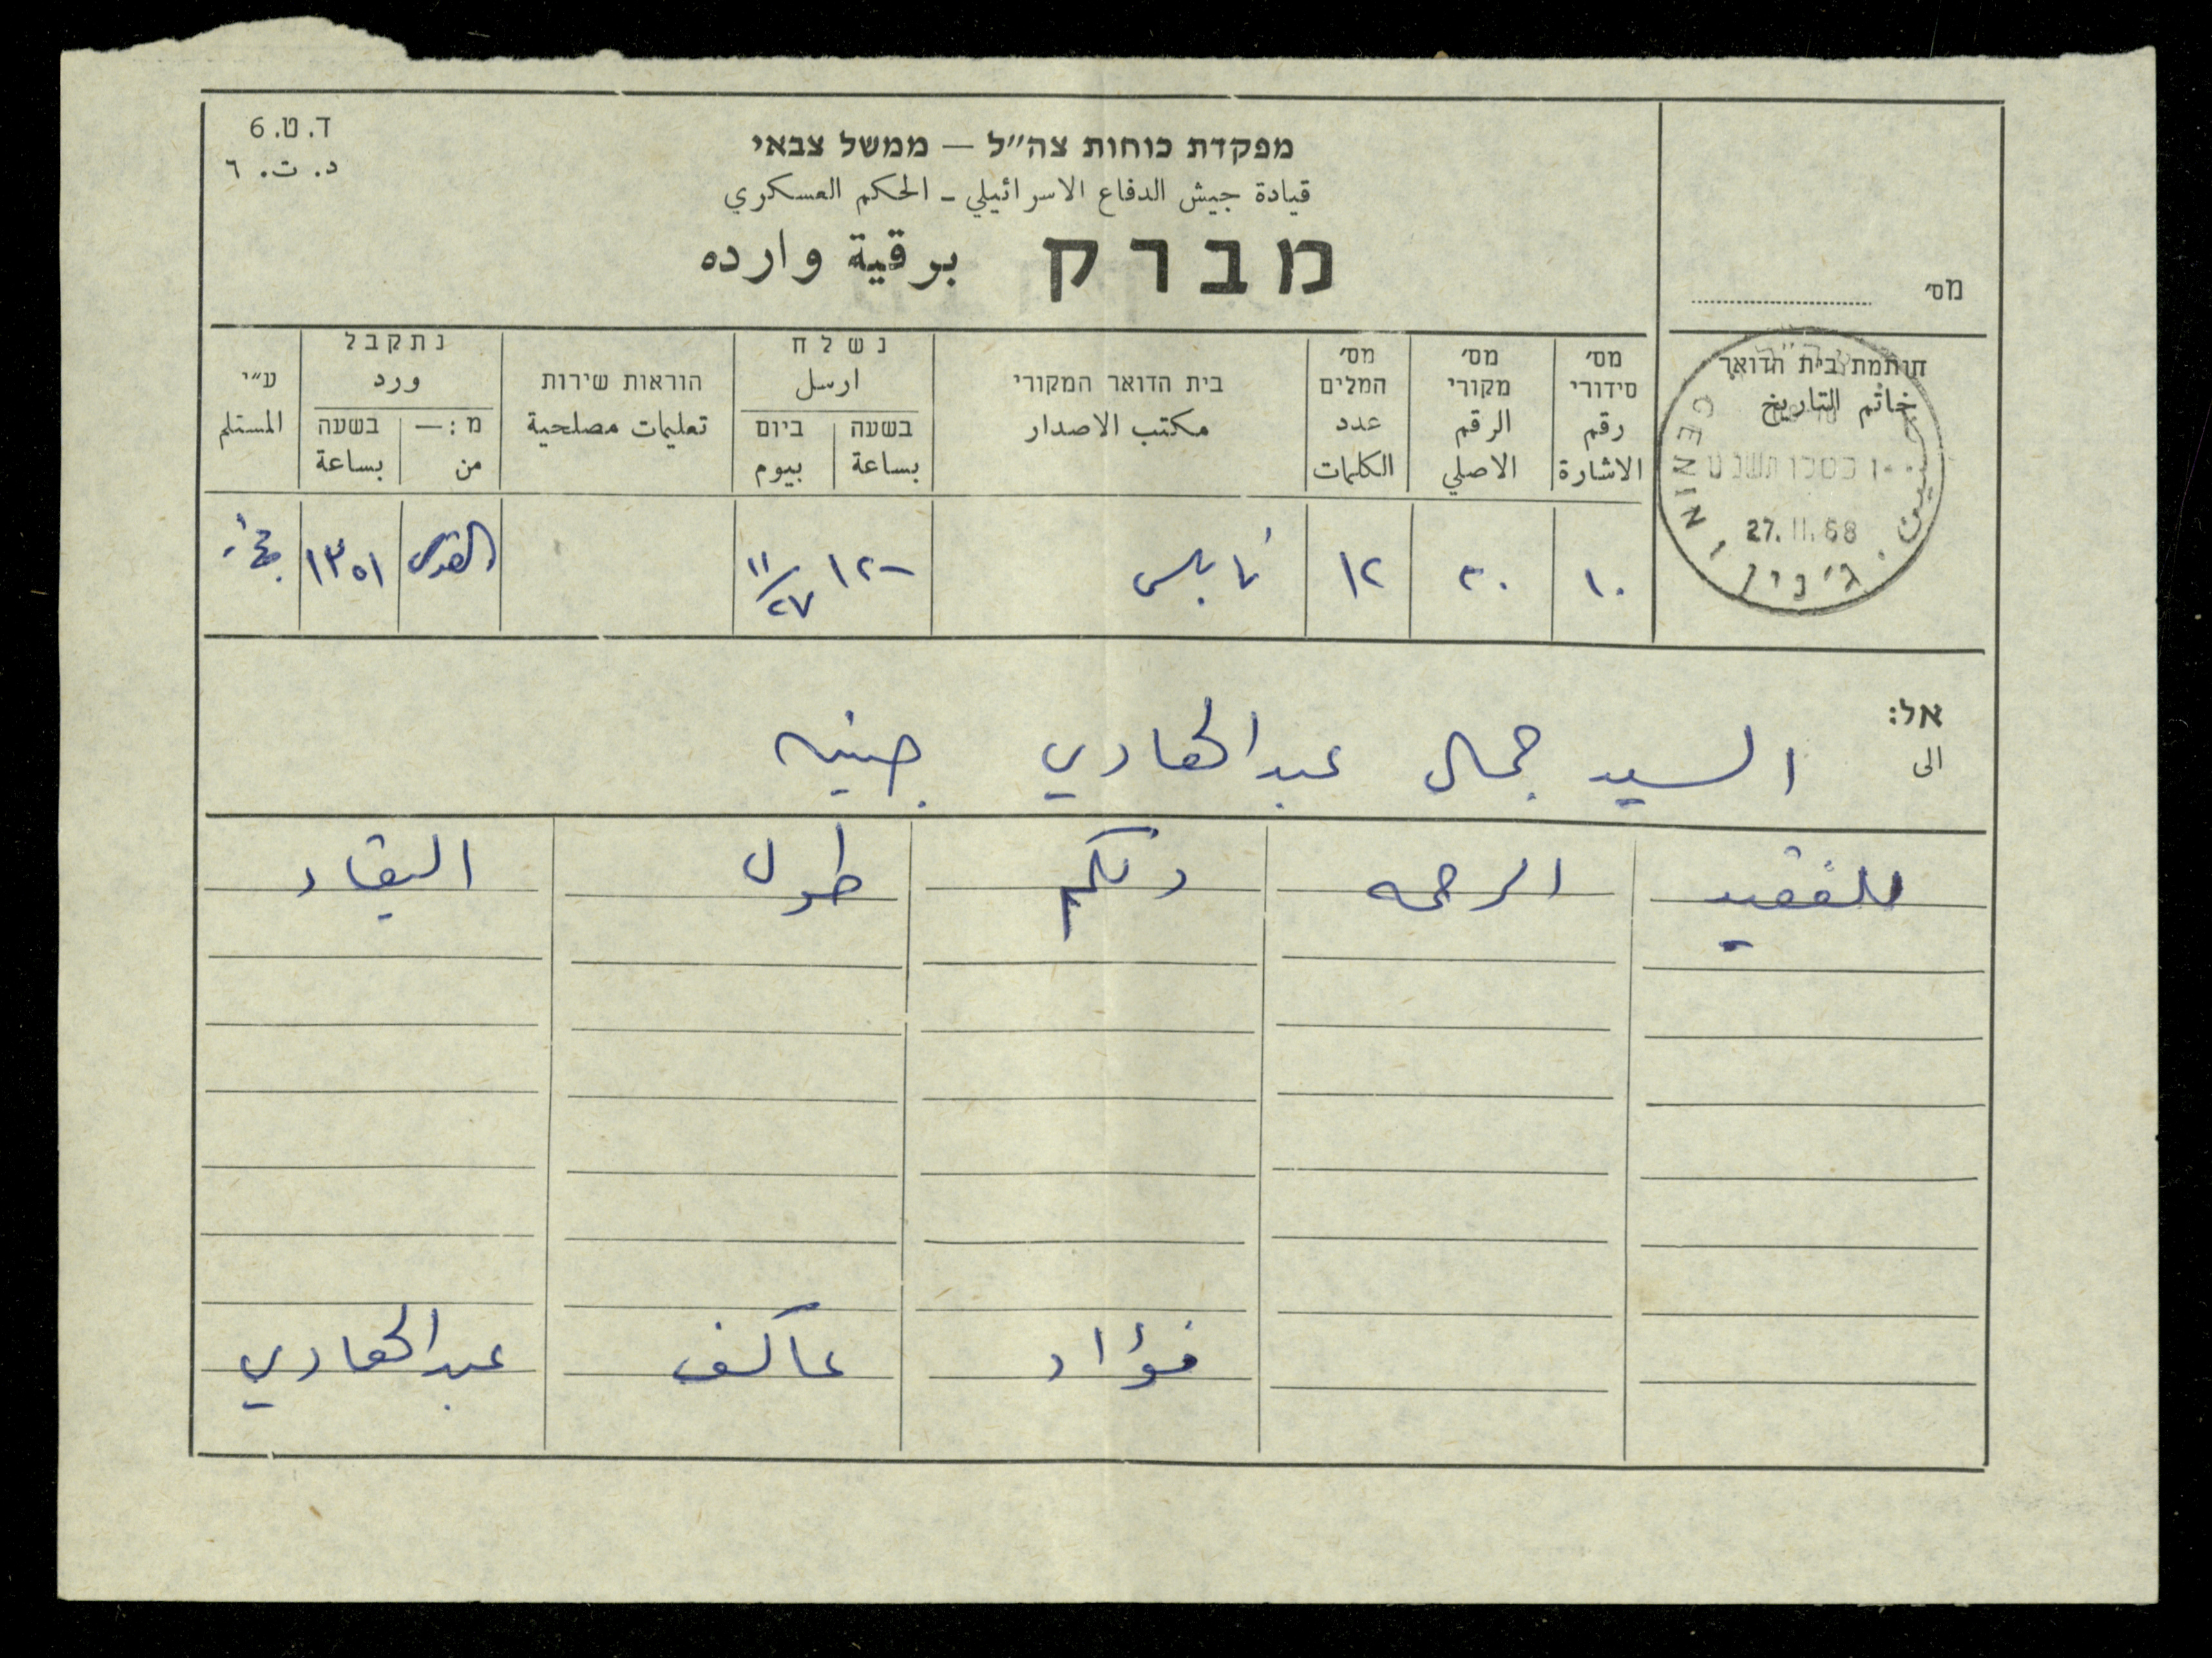 ד.ט.6
د. ت. ٦
מפקדת כוחות צה״ל — ממשל צבאי
قيادة جيش الدفاع الاسرائيلي - الحكم العسكري
מברק برقية وارده
מס׳
חותמת בית הדואר
خاتم التاريخ
CENIN
جنين
ג׳נין
27.11.68
מס׳ סידורי
رقم الاشارة
מס׳ מקורי
الرقم الاصلي
מס׳ המלים
عدد الكلمات
בית הדואר המקורי
مكتب الاصدار
נשלח
ارسل
בשעה
بساعة
ביום
بيوم
הוראות שירות
تعليمات مصلحية
נתקבל
ورد
מ:—
من
בשעה
بساعة
ע״י
المستلم
١٠ ٢٠ ١٢ نابلس ١٢- ١١/٢٧ القدس ١٣٥١
אל:
الى السيد جمال عبدالهادي جنين
للفقيد الرحمه ولكم طول البقاء
فؤاد عاكف عبدالهادي